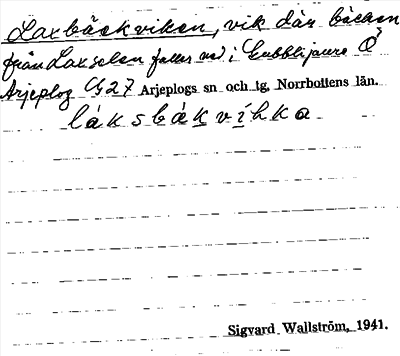 Laxbäckviken, vik där bäcken
från Laxselen faller ned i Gubblijaure Ö
Arjeplog G27 Arjeplogs sn och tg, Norrbottens län.
láksbákvíhka
Sigvard Wallström, 1941.